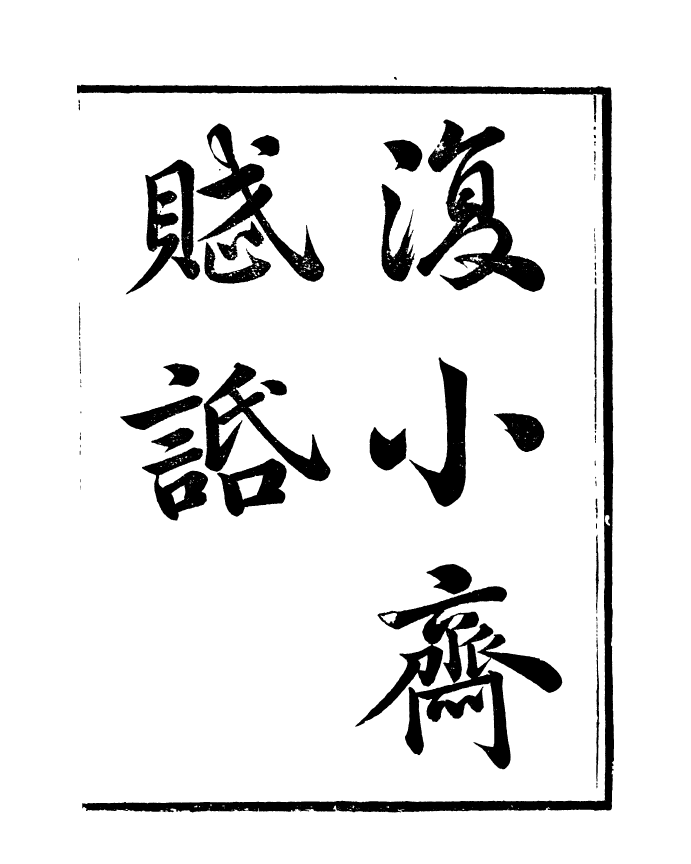 復小齋
賦話